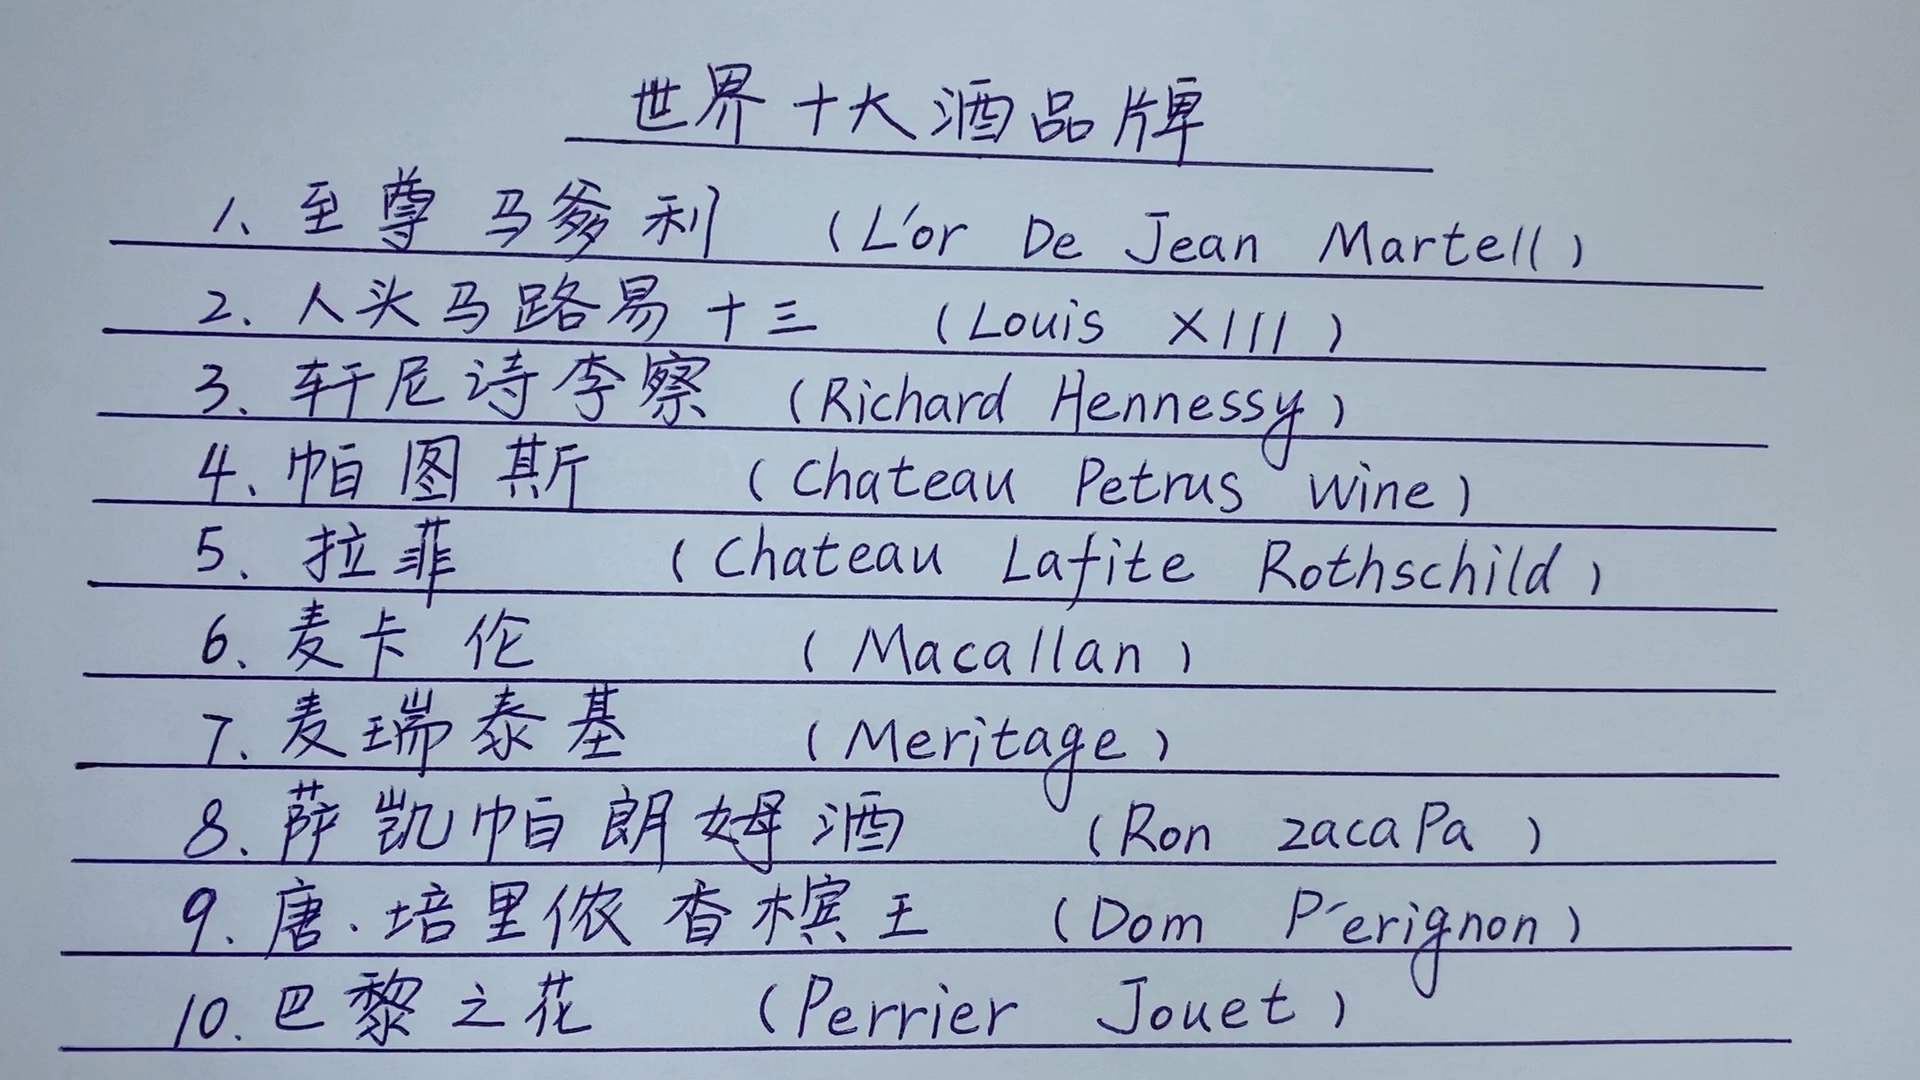 世界十大酒品牌
1、至尊马爹利 (L'or De Jean Martell)
2、人头马路易十三 (Louis XIII)
3、轩尼诗李察 (Richard Hennessy)
4、帕图斯 (Chateau Petrus wine)
5、拉菲 (Chateau Lafite Rothschild)
6、麦卡伦 (Macallan)
7、麦瑞泰基 (Meritage)
8、萨凯帕朗姆酒 (Ron zacaPa)
9、唐·培里侬香槟王 (Dom P'erignon)
10、巴黎之花 (Perrier Jouet)